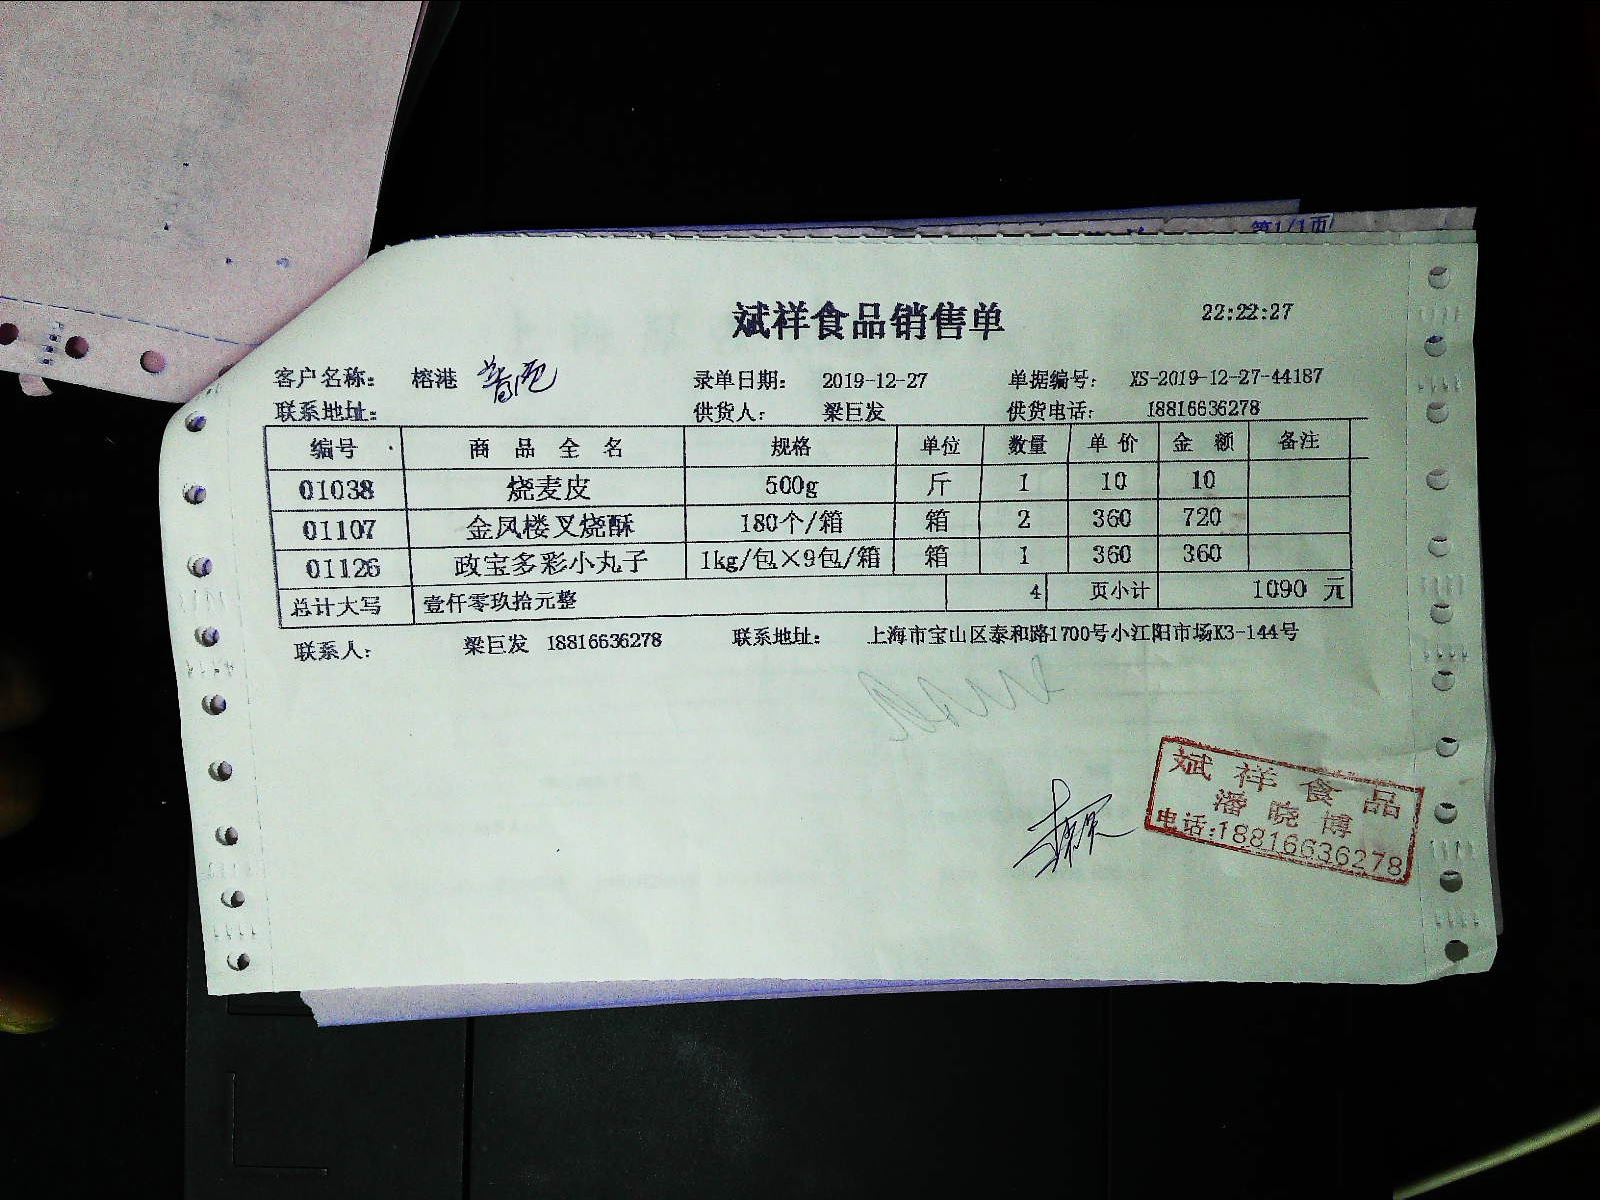 第1/1页
斌祥食品销售单 22:22:27
客户名称: 榕港 录单日期: 2019-12-27 单据编号: XS-2019-12-27-44187
联系地址: 供货人: 梁巨发 供货电话: 18816636278
编号 商品全名 规格 单位 数量 单价 金额 备注
01038 烧麦皮 500g 斤 1 10 10
01107 金凤楼叉烧酥 180个/箱 箱 2 360 720
01126 政宝多彩小丸子 1kg/包×9包/箱 箱 1 360 360
总计大写 壹仟零玖拾元整 4 页小计 1090 元
联系人: 梁巨发 18816636278 联系地址: 上海市宝山区泰和路1700号小江阳市场K3-144号
斌祥食品
潘晓博
电话:18816636278